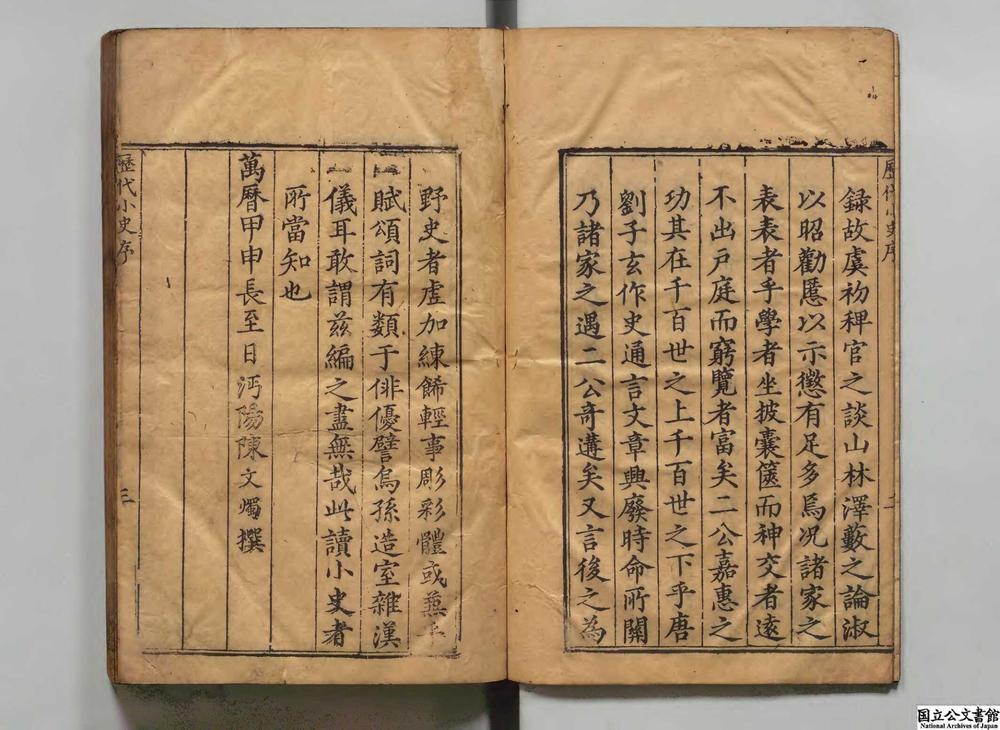 歷代小史序
二
録故虞初稗官之談山林澤藪之論淑
以昭勸慝以示懲有足多焉况諸家之
表表者乎學者坐披囊篋而神交者遠
不出戸庭而窮覽者富矣二公嘉惠之
功其在千百世之上千百世之下乎唐
劉子玄作史通言文章興廢時命所關
乃諸家之遇二公奇遘矣又言後之為
野史者虛加練餙輕事彫彩體或兼乎
賦頌詞有類于俳優譬烏孫造室雜漢
儀耳敢謂兹編之盡無哉此讀小史者
所當知也
萬曆甲申長至日沔陽陳文燭撰
歷代小史序
三
国立公文書館
National Archives of Japan